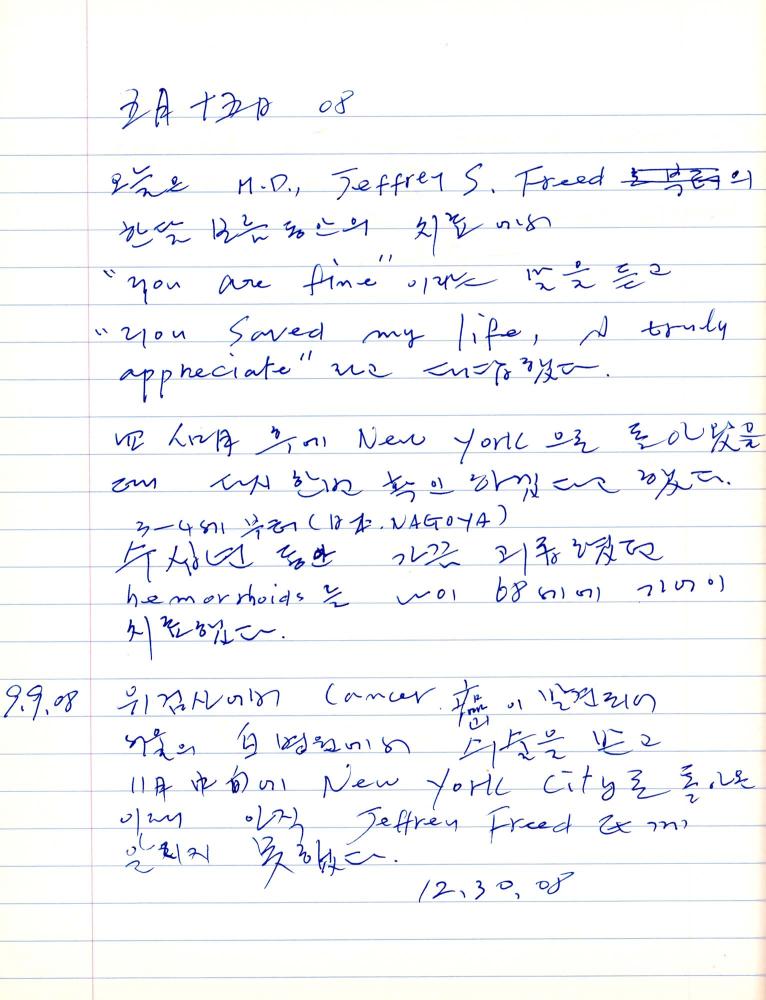 五月 十五日 08
오늘은 M.D., Jeffrey S. Freed 로 부터의
한달 보름동안의 치료에서
"you are fine" 이라는 말을 듣고
"you saved my life, I truly
appreciate" 라고 대답했다.
四 개月 후에 New York 으로 돌아왔을
때 다시 한번 확인하겠다고 했다.
3-4세부터 (日本. NAGOYA)
수십년 동안 가끔 괴롭혔던
hemorrhoids를 나이 68세에 기어이
치료했다.
9.9.08 위검사에서 Cancer. 癌이 발견되어
서울의 白병원에서 수술을 받고
11月 中旬에 New York City로 돌아온
이래 아직 Jeffrey Freed 에게
알리지 못했다.
12.30.08